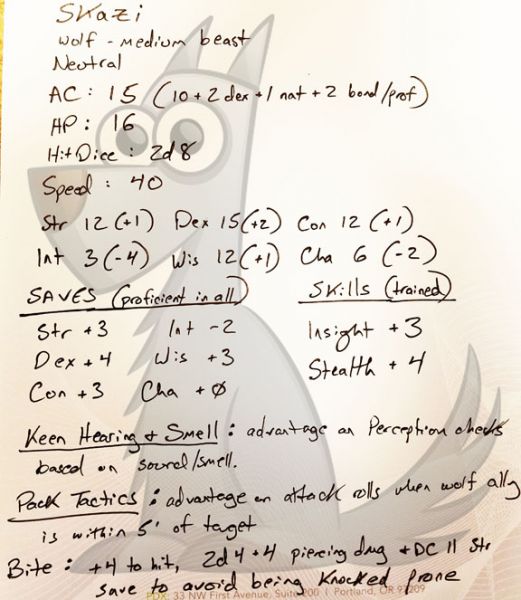 Skazi
wolf - medium beast
Neutral
AC : 15 (10 + 2 dex + 1 nat + 2 bond/prof)
HP : 16
Hit Dice : 2d8
Speed : 40
Str 12 (+1) Dex 15 (+2) Con 12 (+1)
Int 3 (-4) Wis 12 (+1) Cha 6 (-2)
SAVES (proficient in all) Skills (trained)
Str +3 Int -2 Insight +3
Dex +4 Wis +3 Stealth +4
Con +3 Cha +0
Keen Hearing + Smell : advantage on Perception checks
based on sound/smell.
Pack Tactics : advantage on attack rolls when wolf ally
is within 5' of target
Bite : +4 to hit, 2d4+4 piercing dmg + DC 11 Str
save to avoid being knocked prone
PDX: 33 NW First Avenue, Suite 200 | Portland, OR 97209